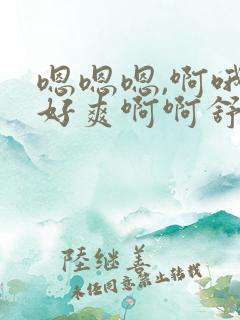 嗯嗯嗯,啊哦
好爽啊啊舒
陆继善
未经同意禁止转载